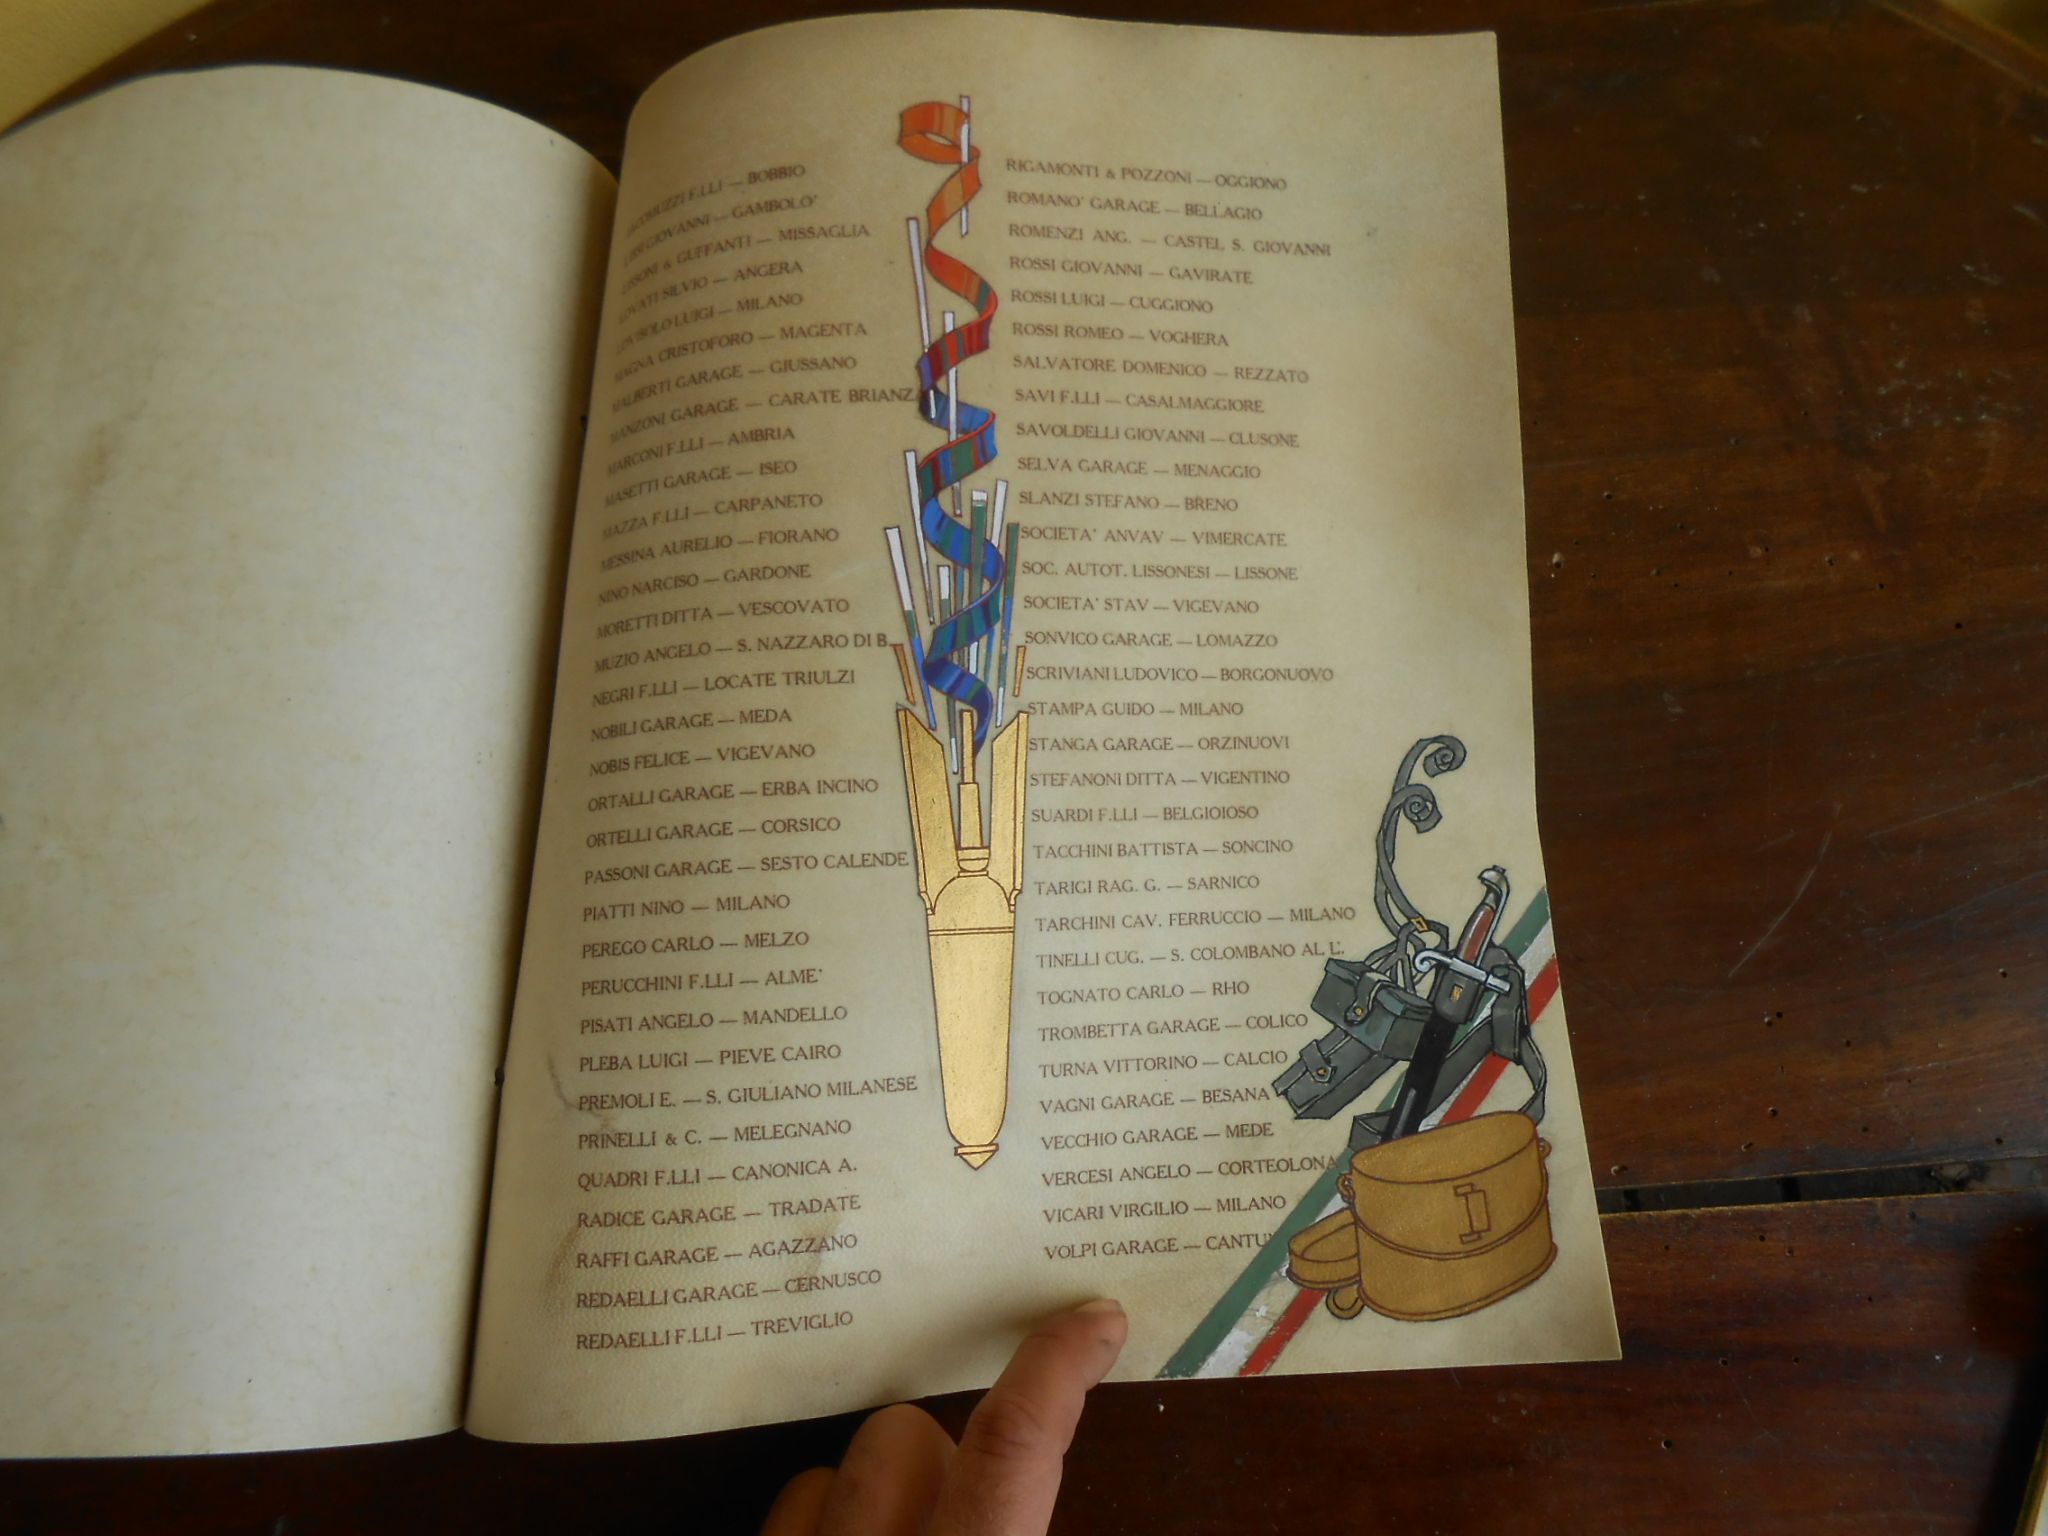 IACOMUZZI F.LLI — BOBBIO
LISSI GIOVANNI — GAMBOLO'
LISSONI & GUFFANTI — MISSAGLIA
LOVATI SILVIO — ANGERA
LOVISOLO LUIGI — MILANO
MAGNA CRISTOFORO — MAGENTA
MALBERTI GARAGE — GIUSSANO
MANZONI GARAGE — CARATE BRIANZ
MARCONI F.LLI — AMBRIA
MASETTI GARAGE — ISEO
MAZZA F.LLI — CARPANETO
MESSINA AURELIO — FIORANO
NINO NARCISO — GARDONE
MORETTI DITTA — VESCOVATO
MUZIO ANGELO — S. NAZZARO DI B.
NEGRI F.LLI — LOCATE TRIULZI
NOBILI GARAGE — MEDA
NOBIS FELICE — VIGEVANO
ORTALLI GARAGE — ERBA INCINO
ORTELLI GARAGE — CORSICO
PASSONI GARAGE — SESTO CALENDE
PIATTI NINO — MILANO
PEREGO CARLO — MELZO
PERUCCHINI F.LLI — ALME'
PISATI ANGELO — MANDELLO
PLEBA LUIGI — PIEVE CAIRO
PREMOLI E. — S. GIULIANO MILANESE
PRINELLI & C. — MELEGNANO
QUADRI F.LLI — CANONICA A.
RADICE GARAGE — TRADATE
RAFFI GARAGE — AGAZZANO
REDAELLI GARAGE — CERNUSCO
REDAELLI F.LLI — TREVIGLIO
RIGAMONTI & POZZONI — OGGIONO
ROMANO' GARAGE — BELLAGIO
ROMENZI ANG. — CASTEL S. GIOVANNI
ROSSI GIOVANNI — GAVIRATE
ROSSI LUIGI — CUGGIONO
ROSSI ROMEO — VOGHERA
SALVATORE DOMENICO — REZZATO
SAVI F.LLI — CASALMAGGIORE
SAVOLDELLI GIOVANNI — CLUSONE
SELVA GARAGE — MENAGGIO
SLANZI STEFANO — BRENO
SOCIETA' ANVAV — VIMERCATE
SOC. AUTOT. LISSONESI — LISSONE
SOCIETA' STAV — VIGEVANO
SONVICO GARAGE — LOMAZZO
SCRIVIANI LUDOVICO — BORGONUOVO
STAMPA GUIDO — MILANO
STANGA GARAGE — ORZINUOVI
STEFANONI DITTA — VIGENTINO
SUARDI F.LLI — BELGIOIOSO
TACCHINI BATTISTA — SONCINO
TARIGI RAG. G. — SARNICO
TARCHINI CAV. FERRUCCIO — MILANO
TINELLI CUG. — S. COLOMBANO AL L.
TOGNATO CARLO — RHO
TROMBETTA GARAGE — COLICO
TURNA VITTORINO — CALCIO
VAGNI GARAGE — BESANA
VECCHIO GARAGE — MEDE
VERCESI ANGELO — CORTEOLONA
VICARI VIRGILIO — MILANO
VOLPI GARAGE — CANTU'